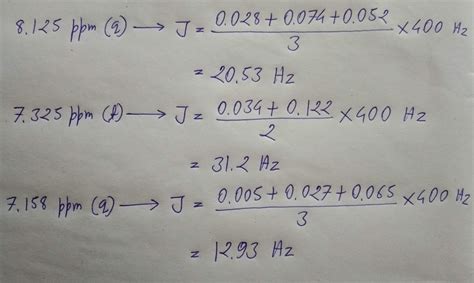 8.125 ppm (q) ⟶ J = (0.028 + 0.074 + 0.052)/3 × 400 Hz
= 20.53 Hz
7.325 ppm (t) ⟶ J = (0.034 + 0.122)/2 × 400 Hz
= 31.2 Hz
7.158 ppm (q) ⟶ J = (0.005 + 0.027 + 0.065)/3 × 400 Hz
= 12.93 Hz